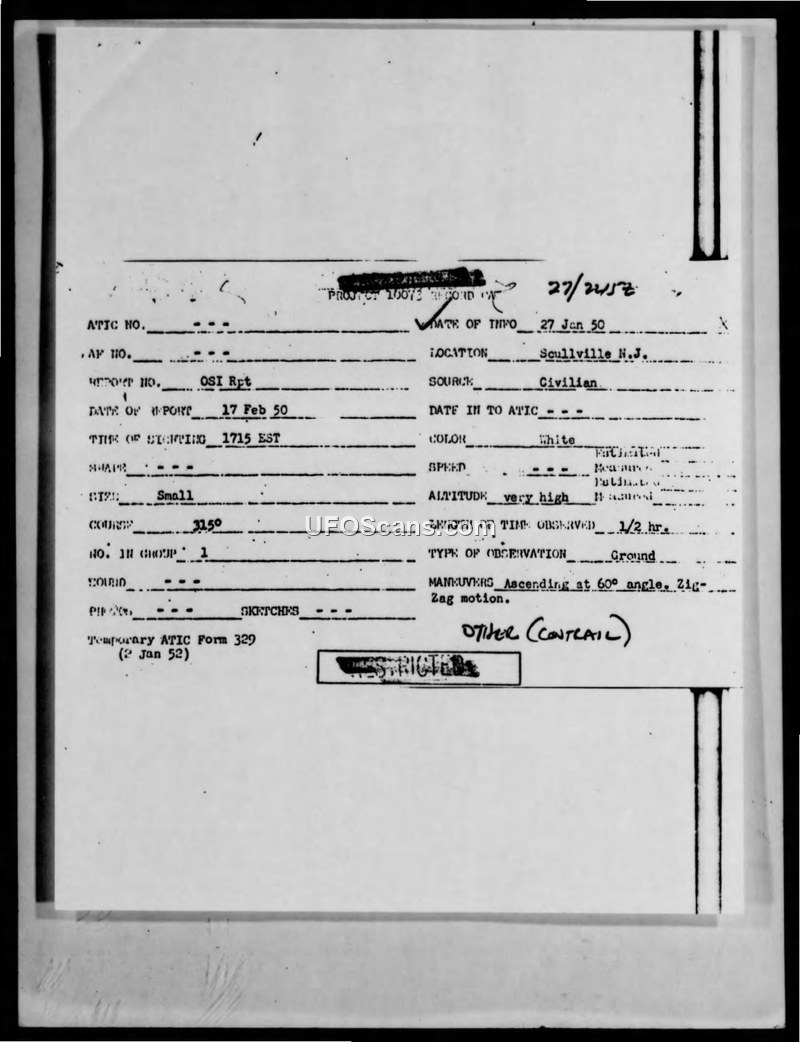 PROJECT 10073 RECORD CARD 27/2215Z
ATIC NO. - - - DATE OF INFO 27 Jan 50
AF NO. - - - LOCATION Scullville N.J.
REPORT NO. OSI Rpt SOURCE Civilian
DATE OF REPORT 17 Feb 50 DATE IN TO ATIC - - -
TIME OF SIGHTING 1715 EST COLOR White
SHAPE - - - SPEED - - - Estimated Measured
SIZE Small ALTITUDE very high Estimated Measured
COURSE 315° LENGTH OF TIME OBSERVED 1/2 hr.
UFOScans.com
NO. IN GROUP 1 TYPE OF OBSERVATION Ground
SOUND - - - MANEUVERS Ascending at 60° angle. Zig-
Zag motion.
PHOTOS - - - SKETCHES - - -
Temporary ATIC Form 329
(2 Jan 52)
OTHER (CONTRAIL)
RESTRICTED